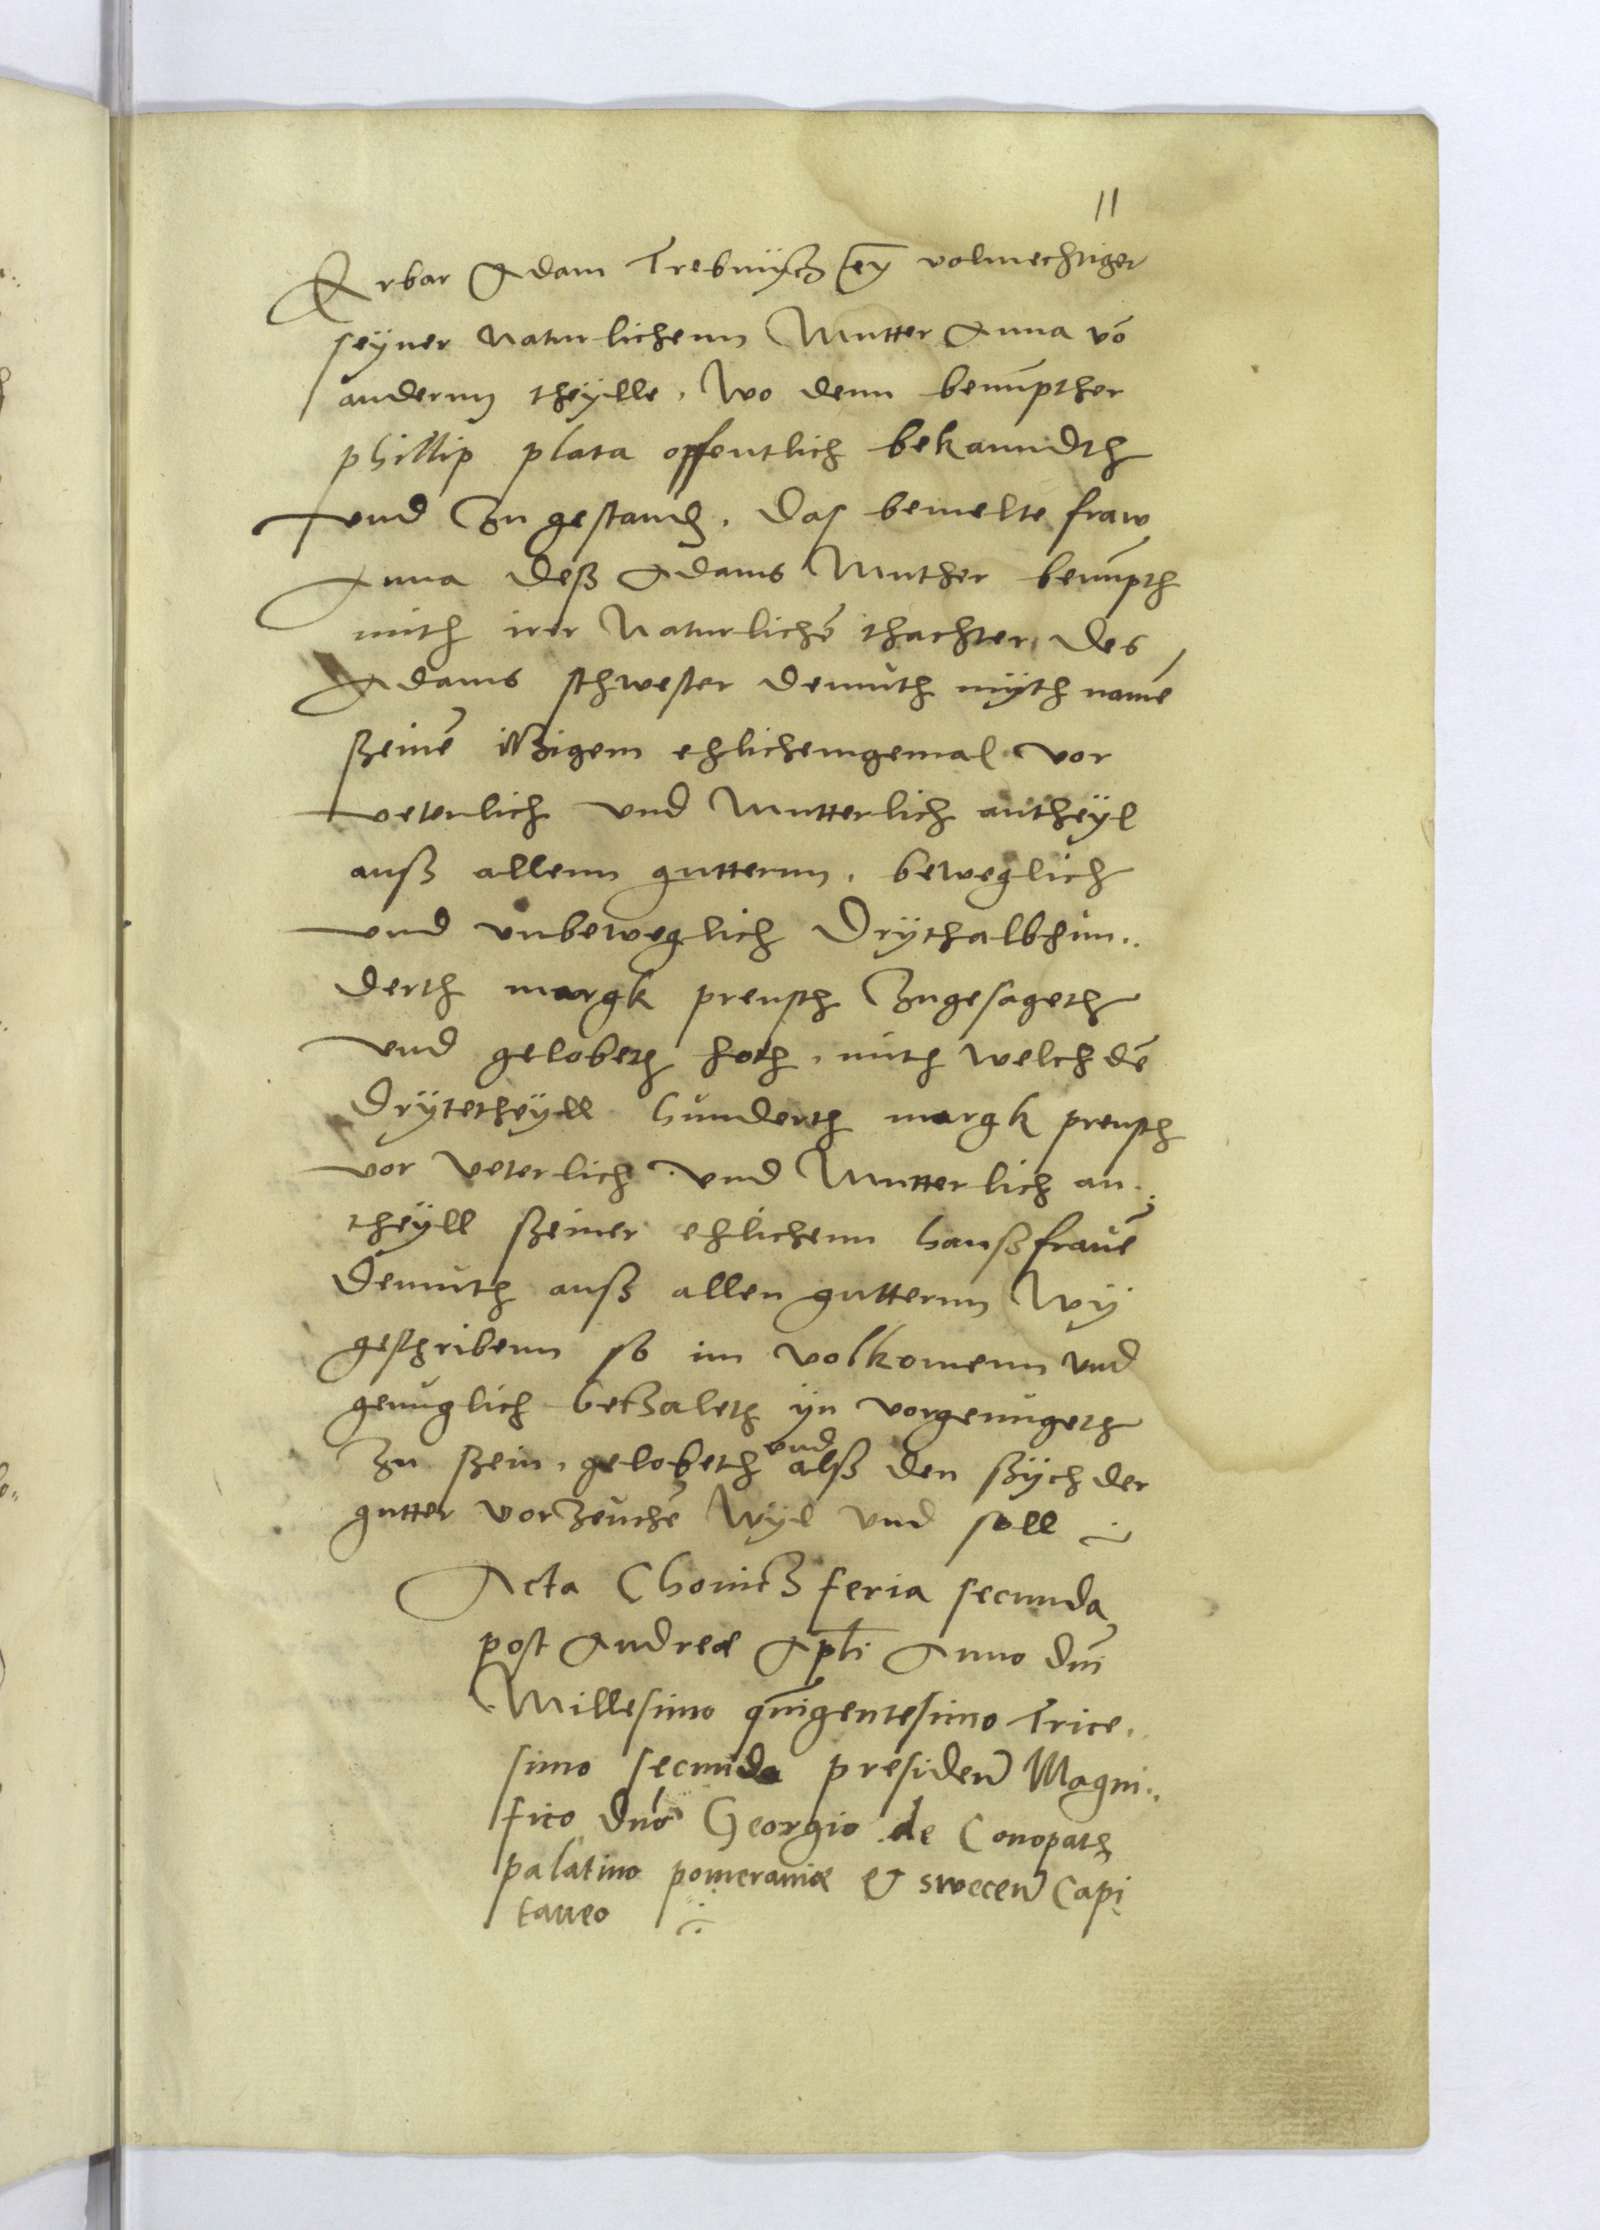 11
Erbar Adam Trebnÿtz eȳ volmechtiger
seÿner naturlichenn Mutter Anna vō
andernn theÿlle, Wo denn benūpther
phillip plata opfentlich bekanndth
vnd Zu gestandī, das bemelte fraw
Anna deß Adams Muther benūpth
mith irer Naturlichē thachter, des
Adams schwester demuth mÿth namē
ßeinē itzigem ehlichemgemal vor
veterlich vnd Mutterlich antheÿl
auß allenn gutternn, beweglich
vnd vnbeweglich Drÿthalbhun..
derth margk preusch Zugesageth
vnd gelobeth hoth, mith welch dē
Drÿtetheÿll hunderth margk preusch
vor veterlich vnd Mutterlich an..
theÿll ßeiner ehlichenn haußfrauē
demuth auß allen gutternn Wÿ
geschribenn so im volkomenn vnd
genuglich betzaleth ÿn vorgenugeth
Zu ßein, gelobeth vnd alß den ßÿch der
gutter vorZeuchē Wÿl vnd soll
Acta Chonitz feria secunda
post Andreæ Apłi Anno dnī
Millesimo qūigentesimo Trice.
simo secunda presiden̄ Magni..
fico dno Georgio de Conopath
palatino pomeraniæ et swecen̄ Capi
taneo